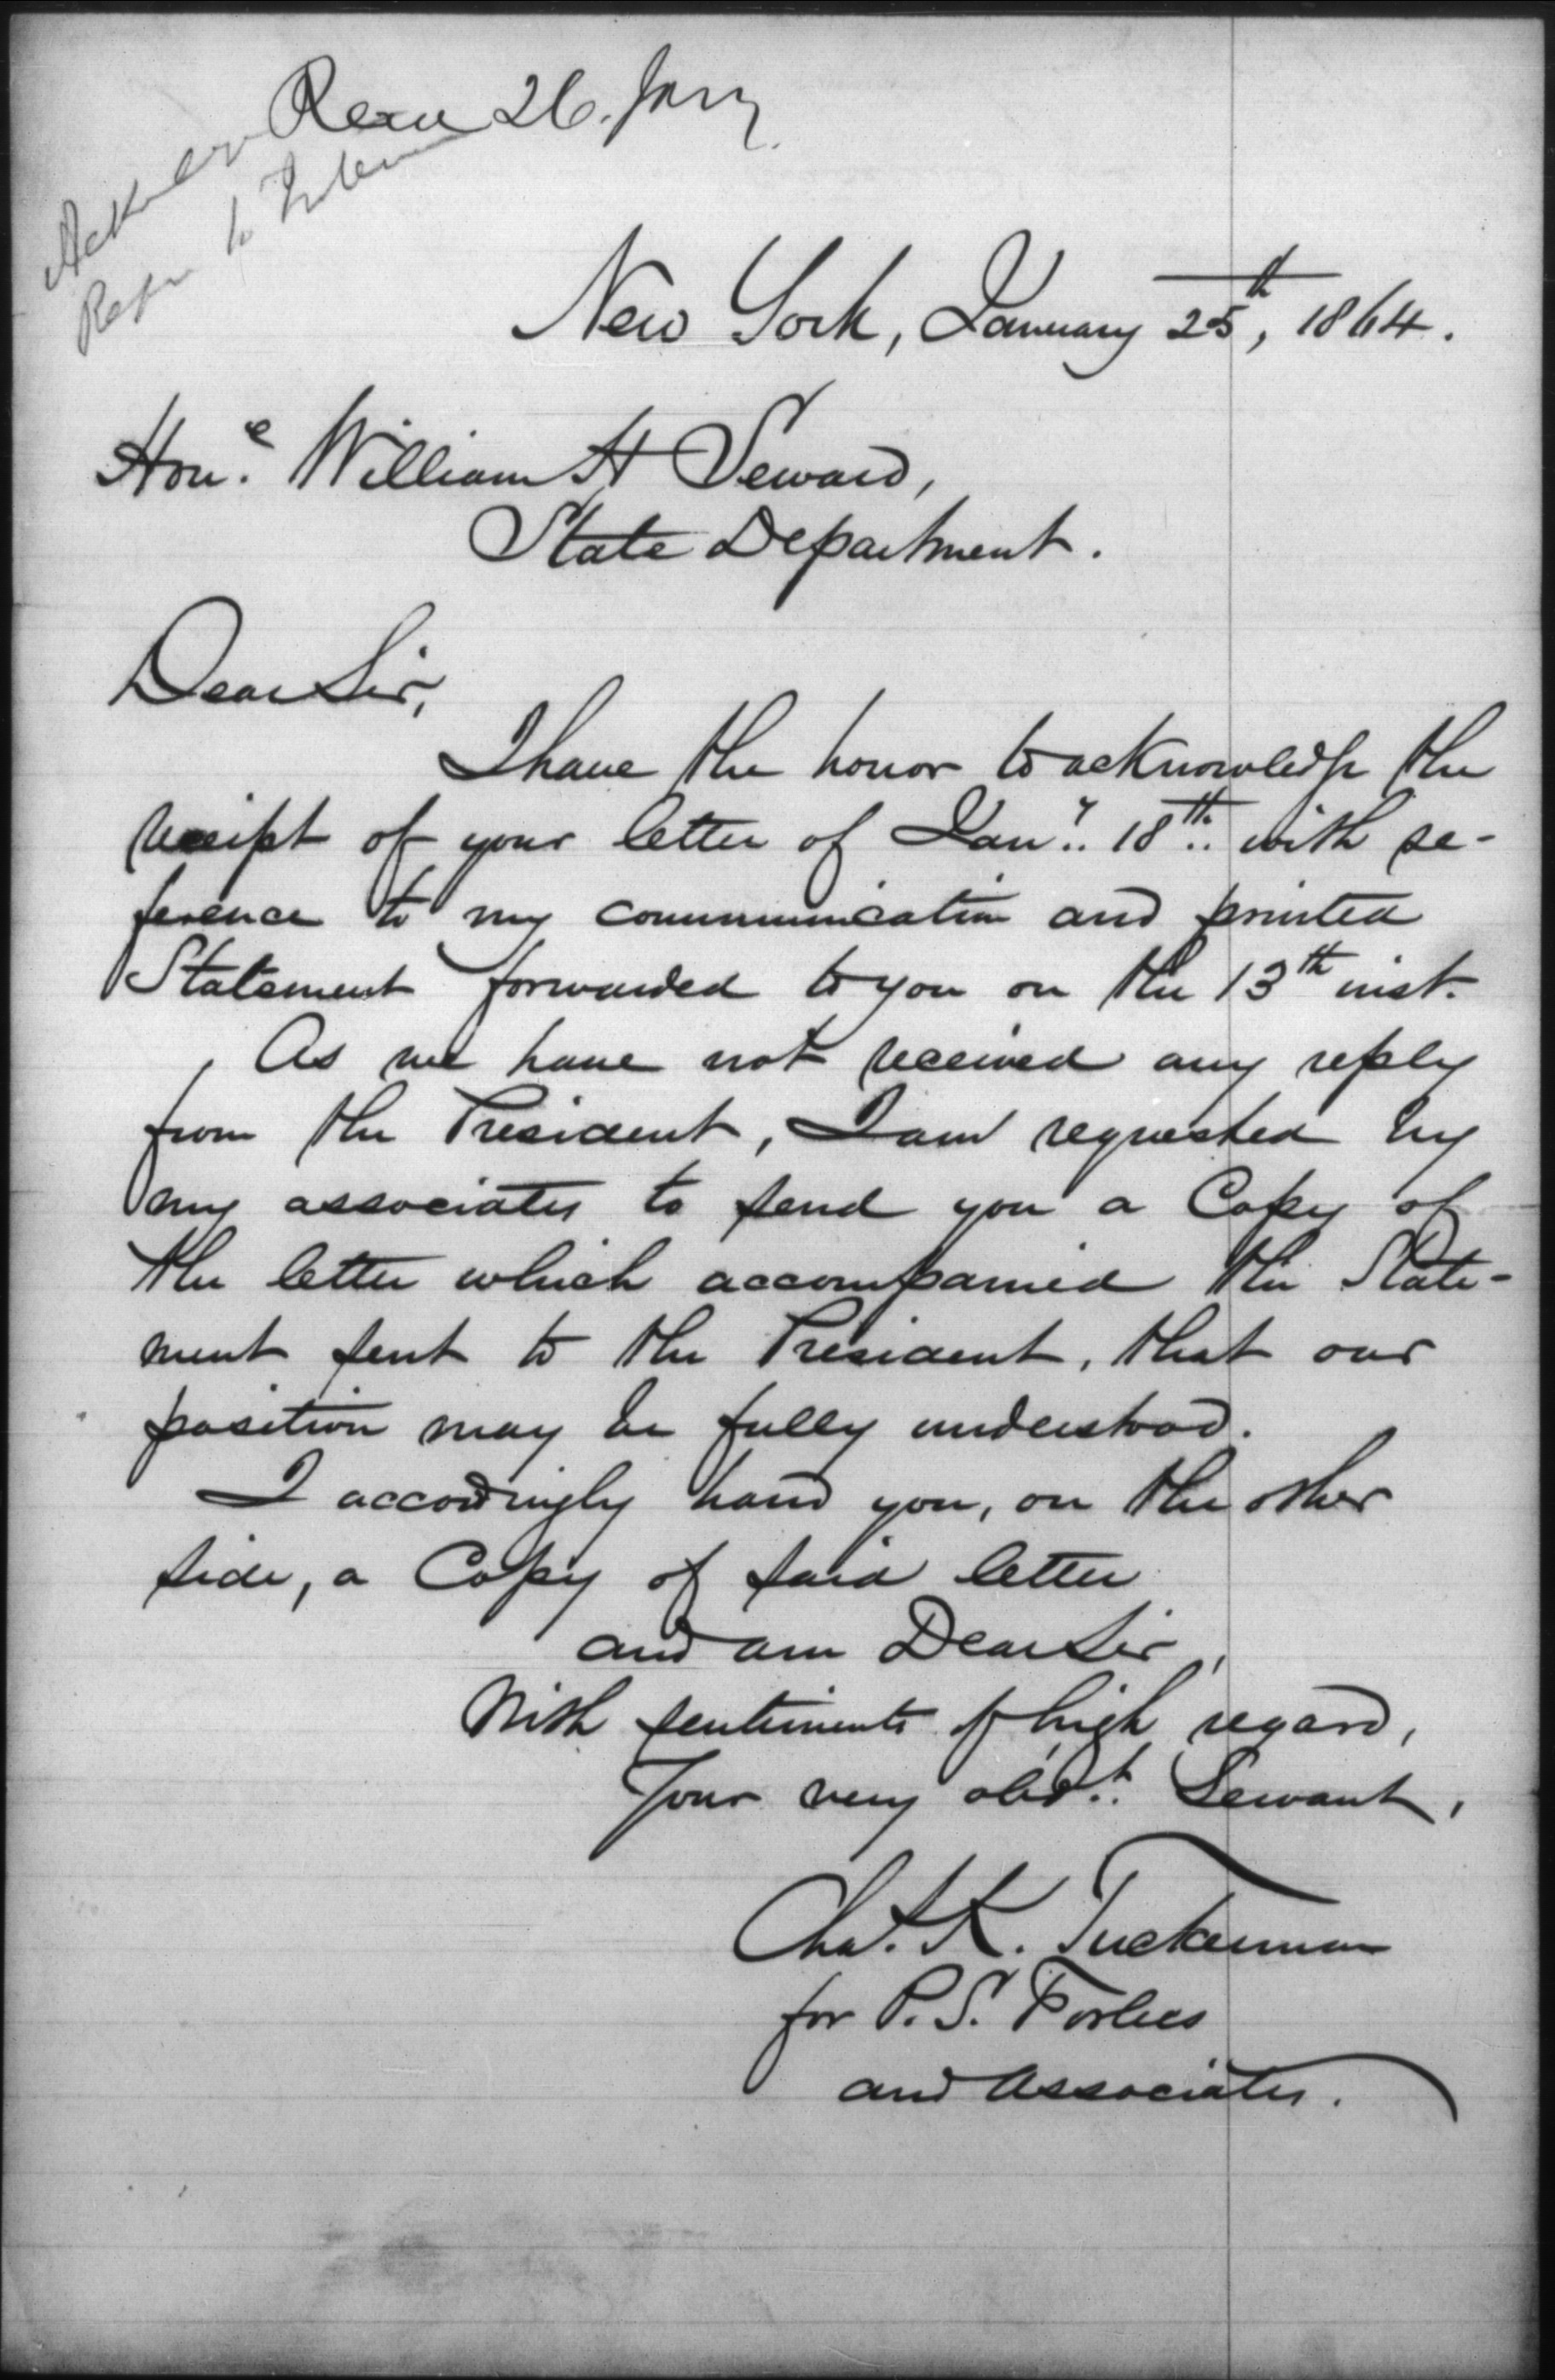 26. Jany.
Ackn
Refer to Interior
New York, January 25th, 1864.
Hone. William H Seward,
State Department.
Dear Sir,
I have the honor to acknowledge the
receipt of your letter of Jany. 18th. with re-
ference to my communication and printed
Statement forwarded to you on the 13th inst.
As we have not received any reply
from the President, I am requested by
my associates to send you a Copy of
the letter which accompanied the State-
ment sent to the President, that our
position may be fully understood.
I accordingly hand you, on the other
side, a Copy of said letter
and am Dear Sir,
With sentiments of high regard,
Your very obdt. Servant,
Chas. K. Tuckerman
for P. S. Forbes
and Associates.